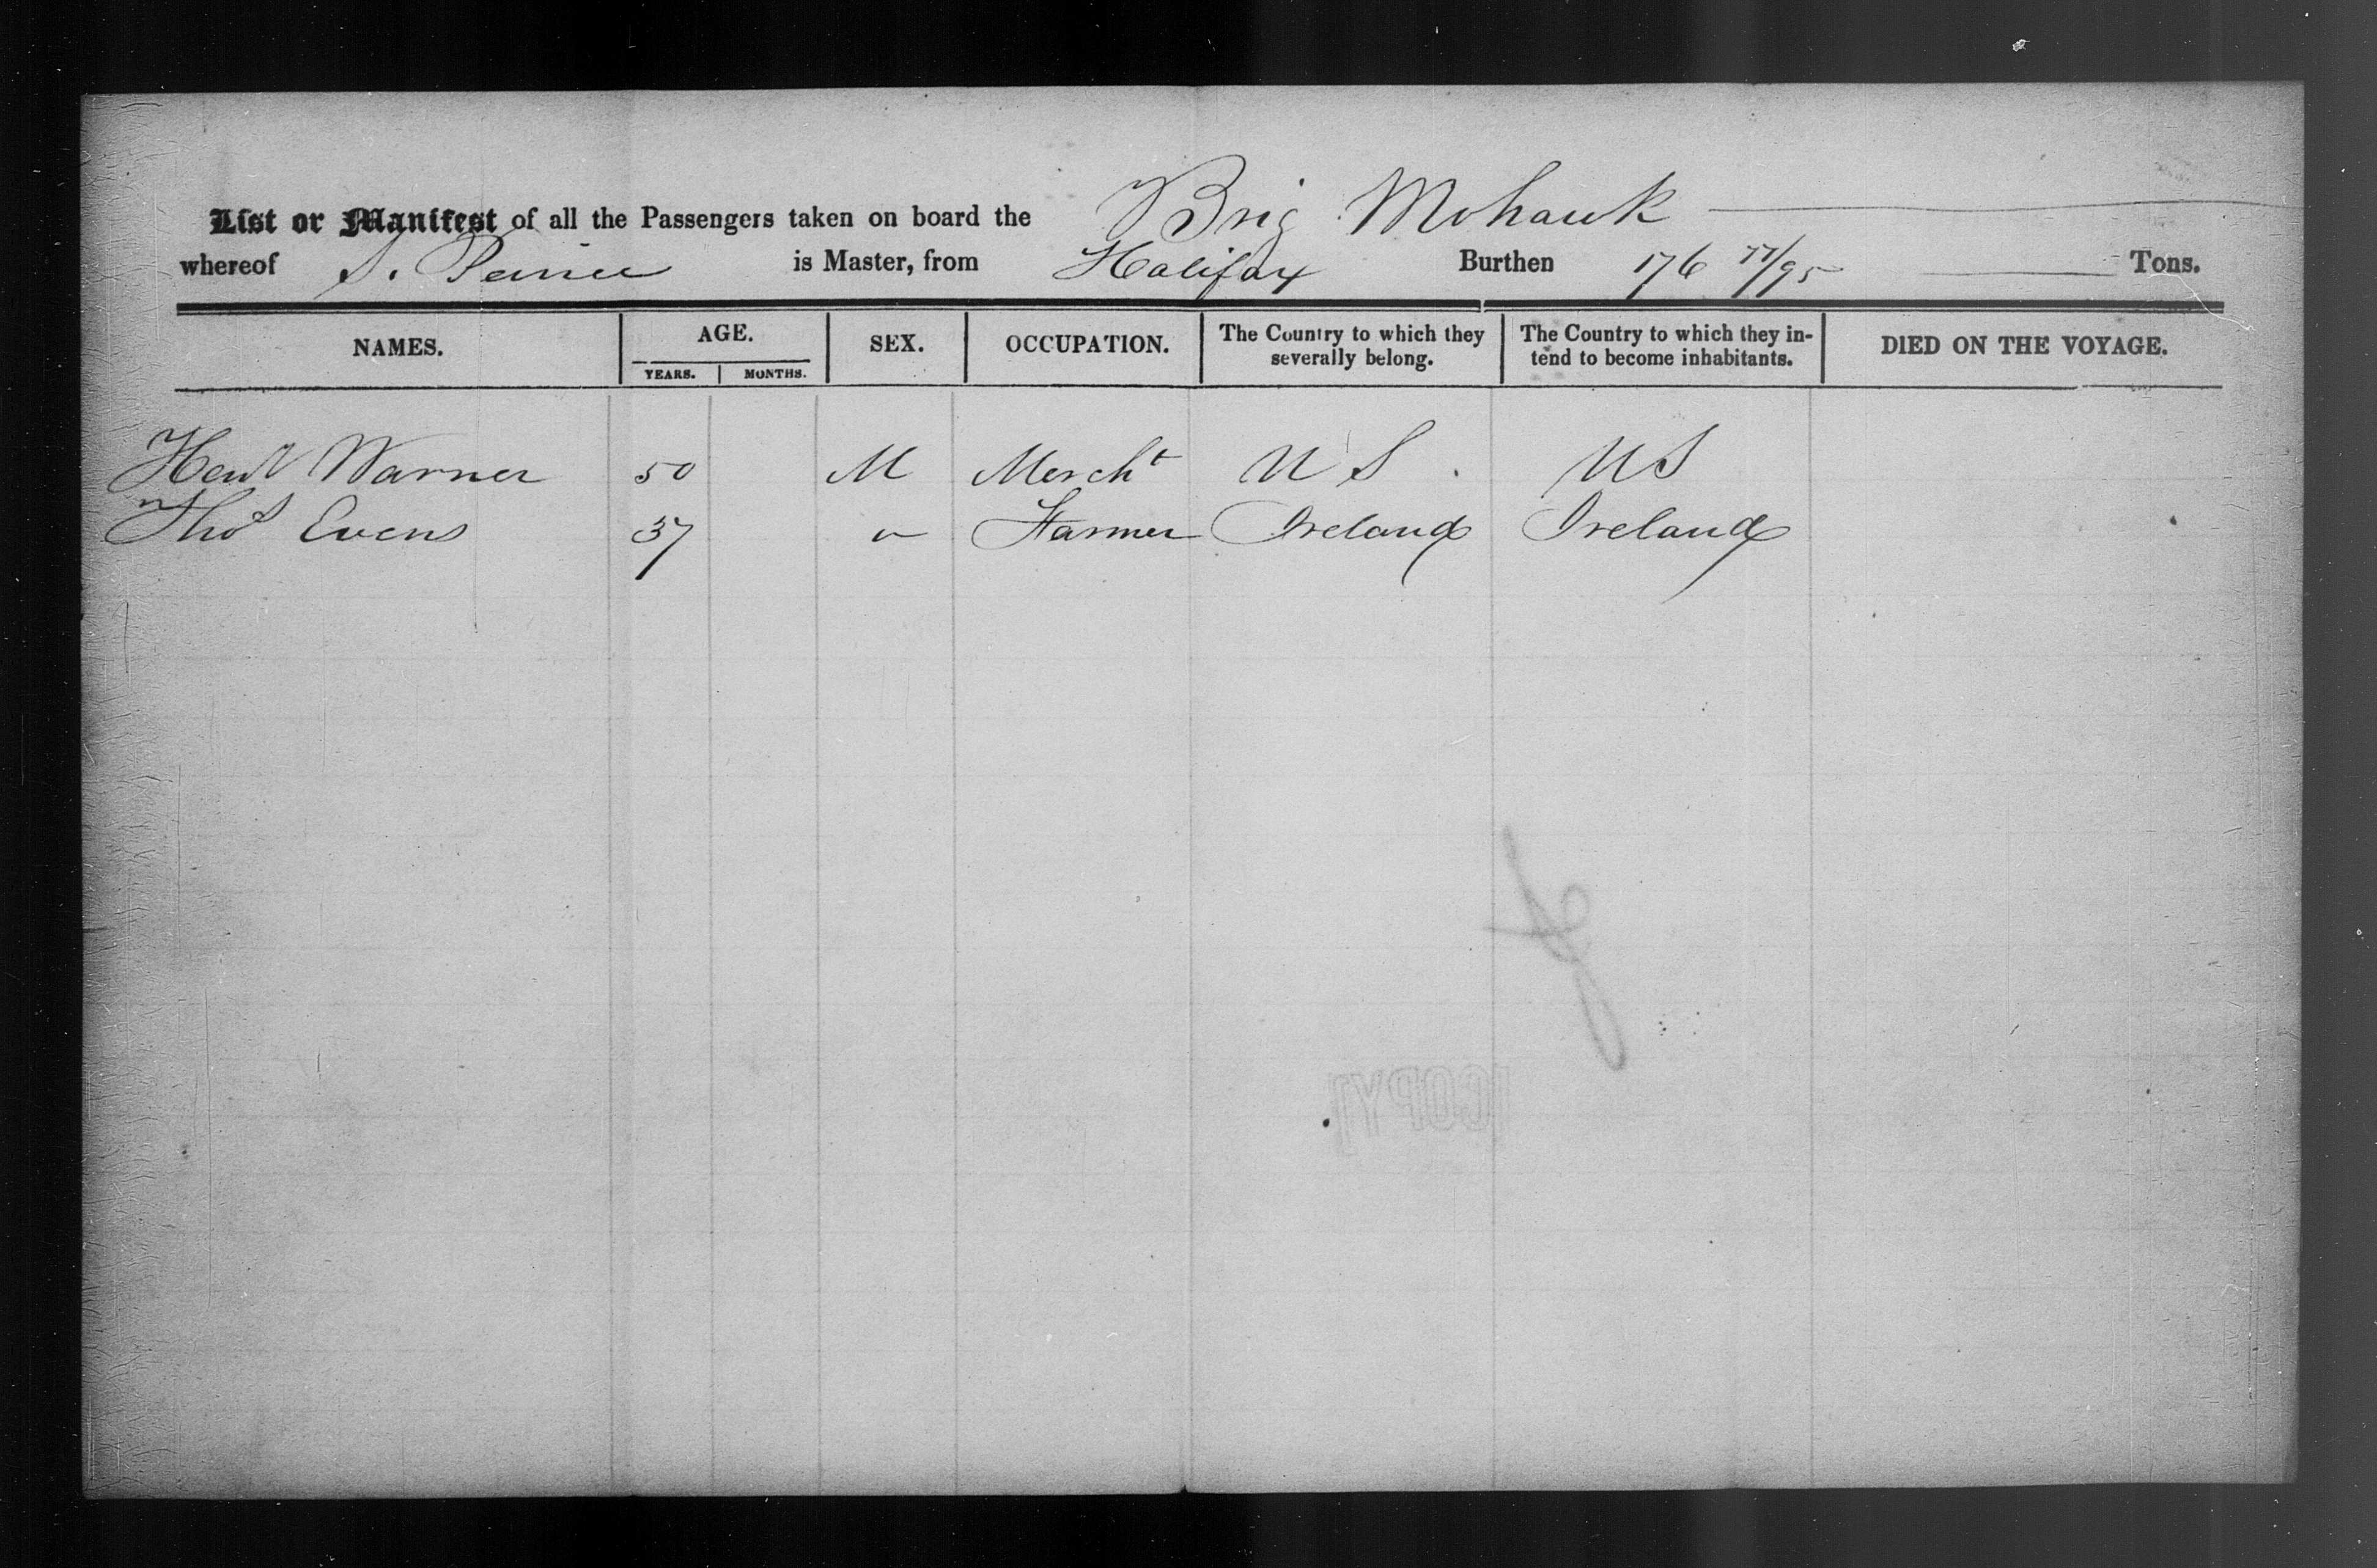 List or Manifest of all the Passengers taken on board the Brig Mohawk
whereof S. is Master, from Halifax Burthen 176 77/95 Tons.
NAMES. AGE. SEX. OCCUPATION. The Country to which they severally belong. The Country to which they in-tend to become inhabitants. DIED ON THE VOYAGE.
YEARS. MONTHS.
Warner 50 M Mercht U S US
Thos Evens 37 " Farmer Ireland Ireland
[COPY]